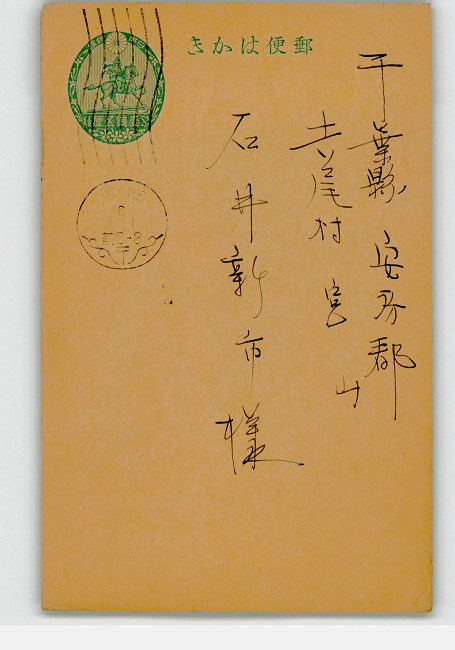 郵便はかき
千葉縣 安房郡
吉尾村 宮山
石井新市様